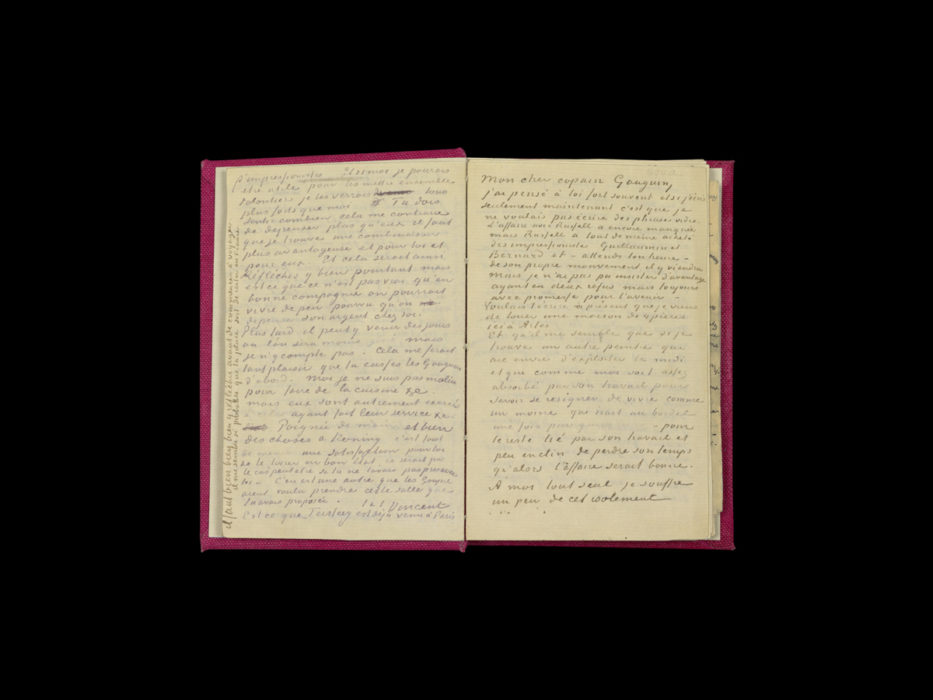 d'impressionistes. Et si moi je pouvais
être utile pour les mettre ensemble
volontiers je les verrais tous
plus forts que moi. Tu dois
sentir combien cela me contrarie
de dépenser plus qu'eux il faut
que je trouve une combinaison
plus avantageuse et pour toi et
pour eux. Et cela serait ainsi.
Réfléchis y bien pourtant mais
est ce que ce n'est pas vrai qu'en
bonne compagnie on pourrait
vivre de peu pourvu qu'on
dépense son argent chez soi.
Plus tard il peut y venir des jours
où l'on sera moins mais
je n'y compte pas. Cela me ferait
tant plaisir que tu eusses les Gauguin
d'abord. Moi je ne suis pas malin
pour faire de la cuisine &c.
mais eux sont autrement exercés
ayant fait leur service &c.
Poignée de main et bien
des choses à Koning c'est tout
une satisfaction pour toi
de le livrer en bon état
si tu ne l'avais pas pris avec
toi – C'en est une autre que les Goupil
aient voulu prendre cette salle que
tu avais proposée. t. à t. Vincent
Est ce que Tersteeg est déjà venu à Paris
il faut bien bien bien y réfléchir avant de commencer à voyager
Mon cher copain Gauguin,
j'ai pensé à toi fort souvent et si j'écris
seulement maintenant c'est que je
ne voulais pas écrire des phrases vides
L'affaire avec Russell a encore manqué
mais Russell a tout de même acheté
des impressionistes Guillaumin et
Bernard et – attends ton heure –
de son propre mouvement il y viendra
mais je n'ai pas pu insister davantage
ayant eu deux refus mais toujours
avec promesse pour l'avenir –
Voulais t'écrire à présent que je viens
de louer une maison de 4 pièces
ici à Arles
Et qu'il me semble que si je
trouve un autre peintre qui
aie envie d'exploiter le midi
et qui comme moi soit assez
absorbé par son travail pour
savoir se résigner de vivre comme
un moine qui irait au bordel
une fois par – pour
le reste lié par son travail et
peu enclin de perdre son temps
qu'alors l'affaire serait bonne.
A moi tout seul je souffre
un peu de cet isolement